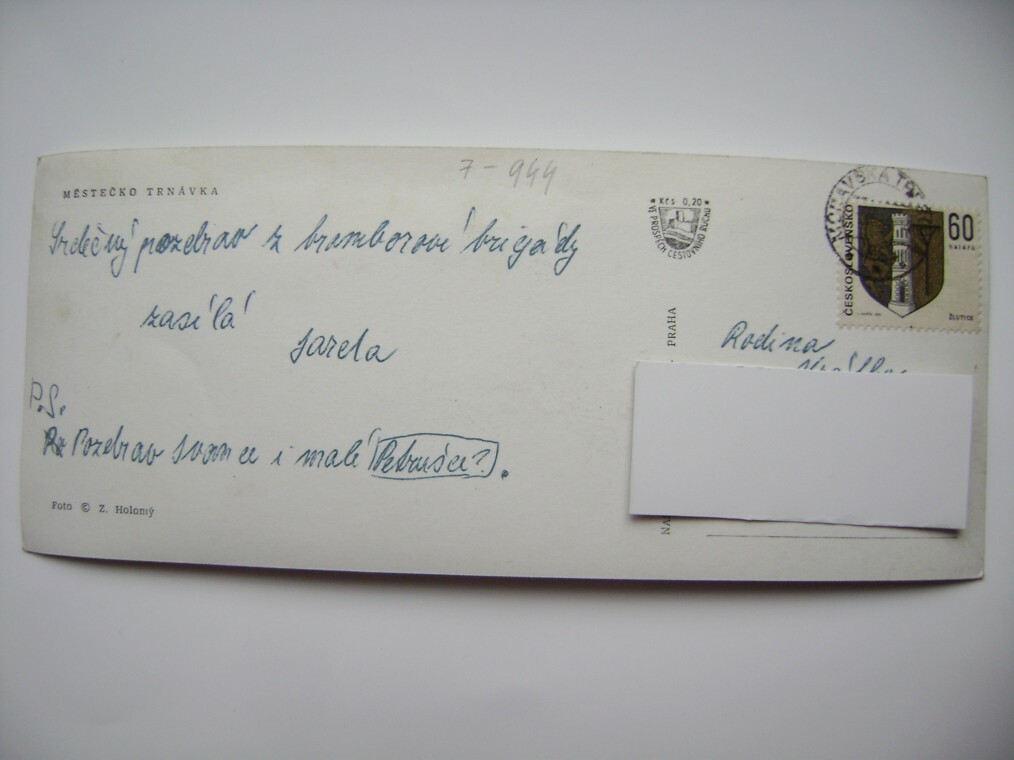 7-944
MĚSTEČKO TRNÁVKA
Srdečný pozdrav z bramborové brigády
zasílá
Jarda
P.S.
Pozdrav Ivance i malé Petrušce?.
Foto © Z. Holomý
* Kčs 0,20 *
VE PROSPĚCH CESTOVNÍHO RUCHU
PRAHA
MORAVSKÁ
ČESKOSLOVENSKO
60
haléřů
ŽLUTICE
Rodina